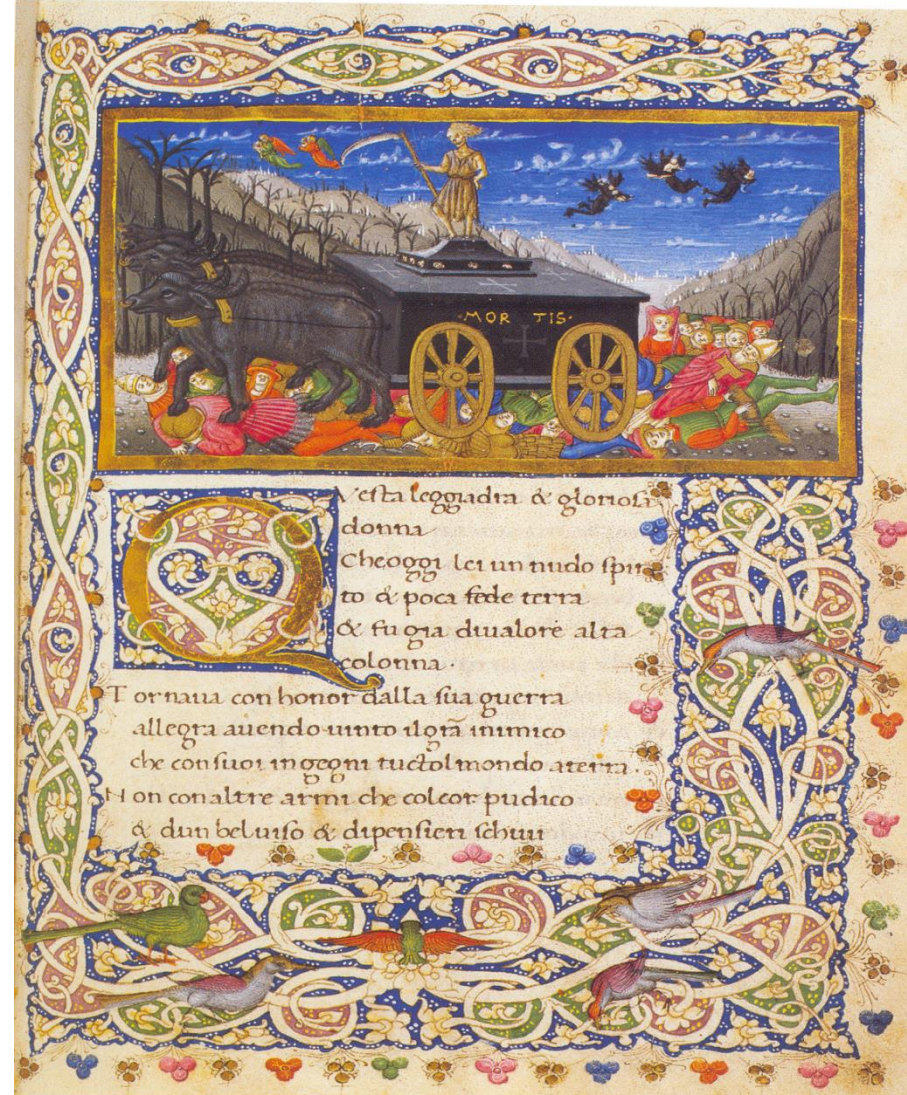 ·MOR TIS·
Questa leggiadra & gloriosa
donna
Che oggi lei un nudo spir
to & poca fede terra
& fu gia diualore alta
colonna·
Tornaua con honor dalla sua guerra
allegra auendo uinto ilgrã inimico
che consuoi ingegni tuctolmondo aterra·
Non conaltre armi che colcor pudico
& dun beluiso & dipensieri schiui